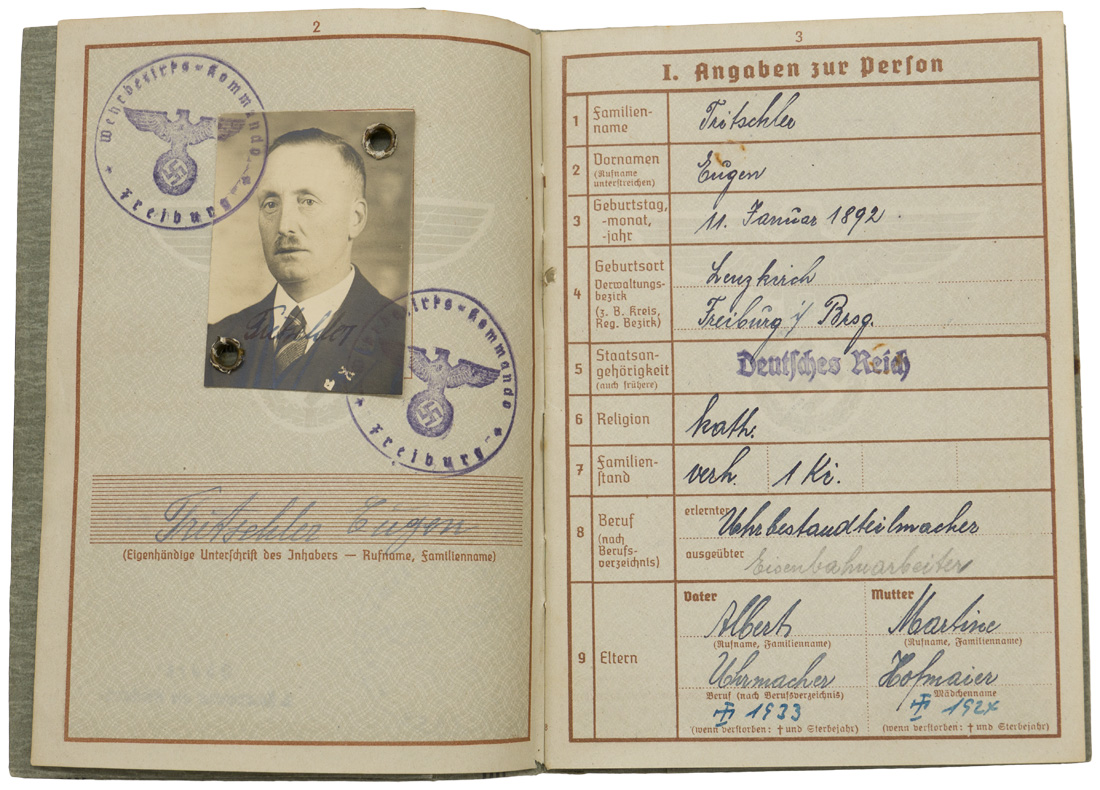 2
Wehrbezirks-Kommando
Freiburg
Wehrbezirks-Kommando
Freiburg
Tritschler Eugen
(Eigenhändige Unterschrift des Inhabers — Rufname, Familienname)
3
I. Angaben zur Person
1 Familien-
name
Tritschler
2 Vornamen
(Rufname
unterstreichen)
Eugen
3 Geburtstag,
-monat,
-jahr
11. Januar 1892
4 Geburtsort
Verwaltungs-
bezirk
(z. B. Kreis,
Reg. Bezirk)
Lenzkirch
Freiburg i/ Brsg.
5 Staatsan-
gehörigkeit
(auch frühere)
Deutsches Reich
6 Religion
kath.
7 Familien-
stand
verh. 1 Ki.
8 Beruf
(nach
Berufs-
verzeichnis)
erlernter Uhrbestandteilmacher
ausgeübter Eisenbahnarbeiter
9 Eltern
Vater
Albert
(Rufname, Familienname)
Uhrmacher
Beruf (nach Berufsverzeichnis)
† 1933
(wenn verstorben: † und Sterbejahr)
Mutter
Martine
(Rufname, Familienname)
Hofmaier
Mädchenname
†
(wenn verstorben: † und Sterbejahr)